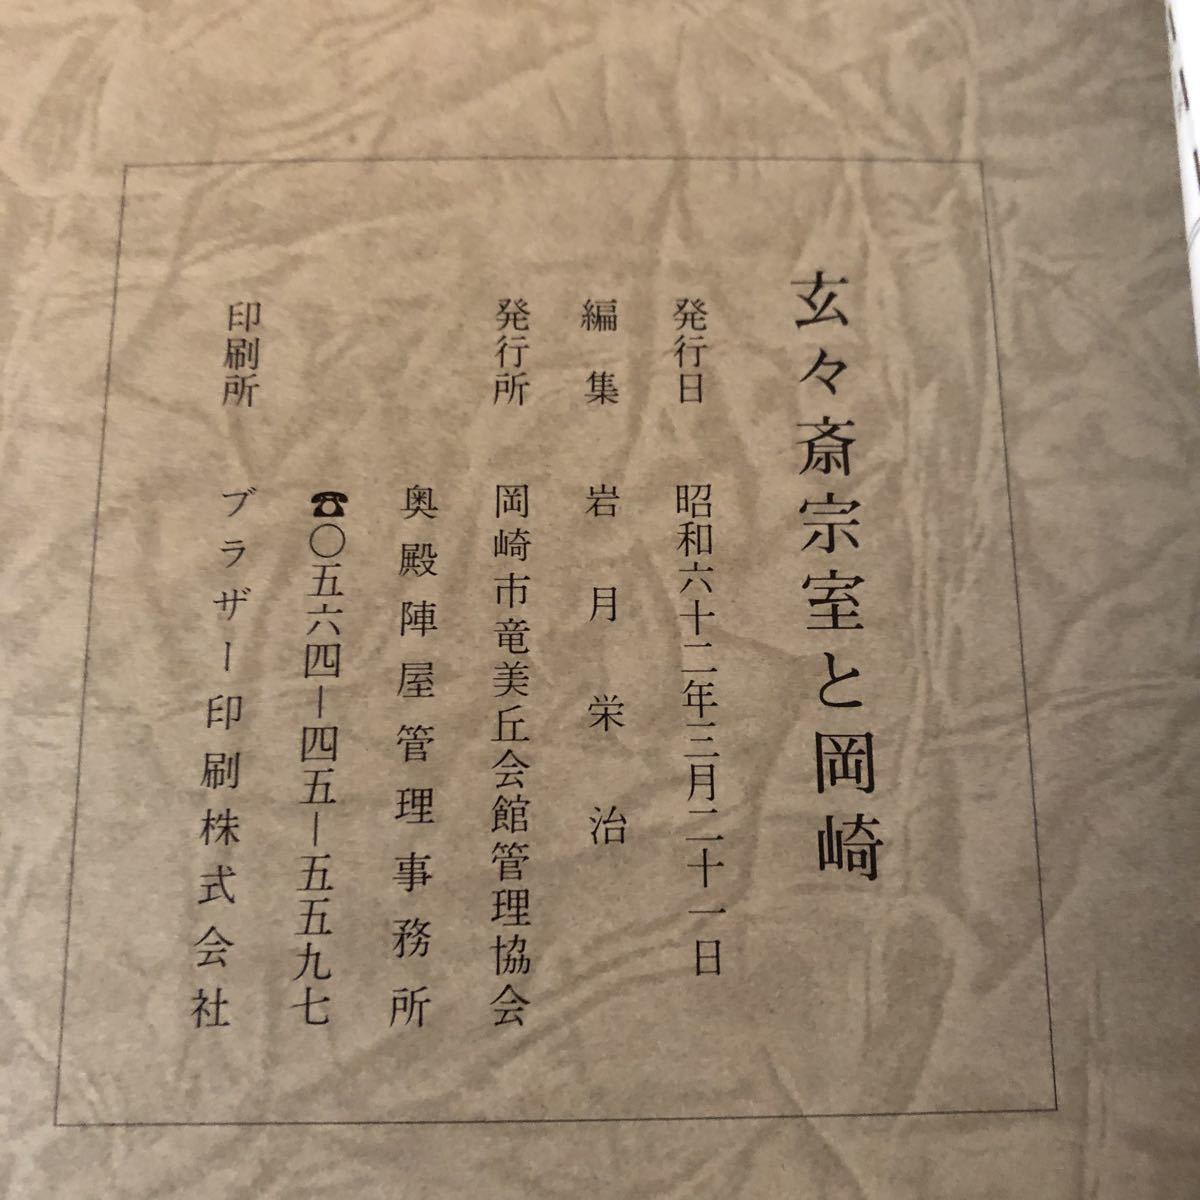 玄々斎宗室と岡崎
発行日 昭和六十二年三月二十一日
編集 岩月栄治
発行所 岡崎市竜美丘会館管理協会
奥殿陣屋管理事務所
☎〇五六四ー四五ー五五九七
印刷所 ブラザー印刷株式会社